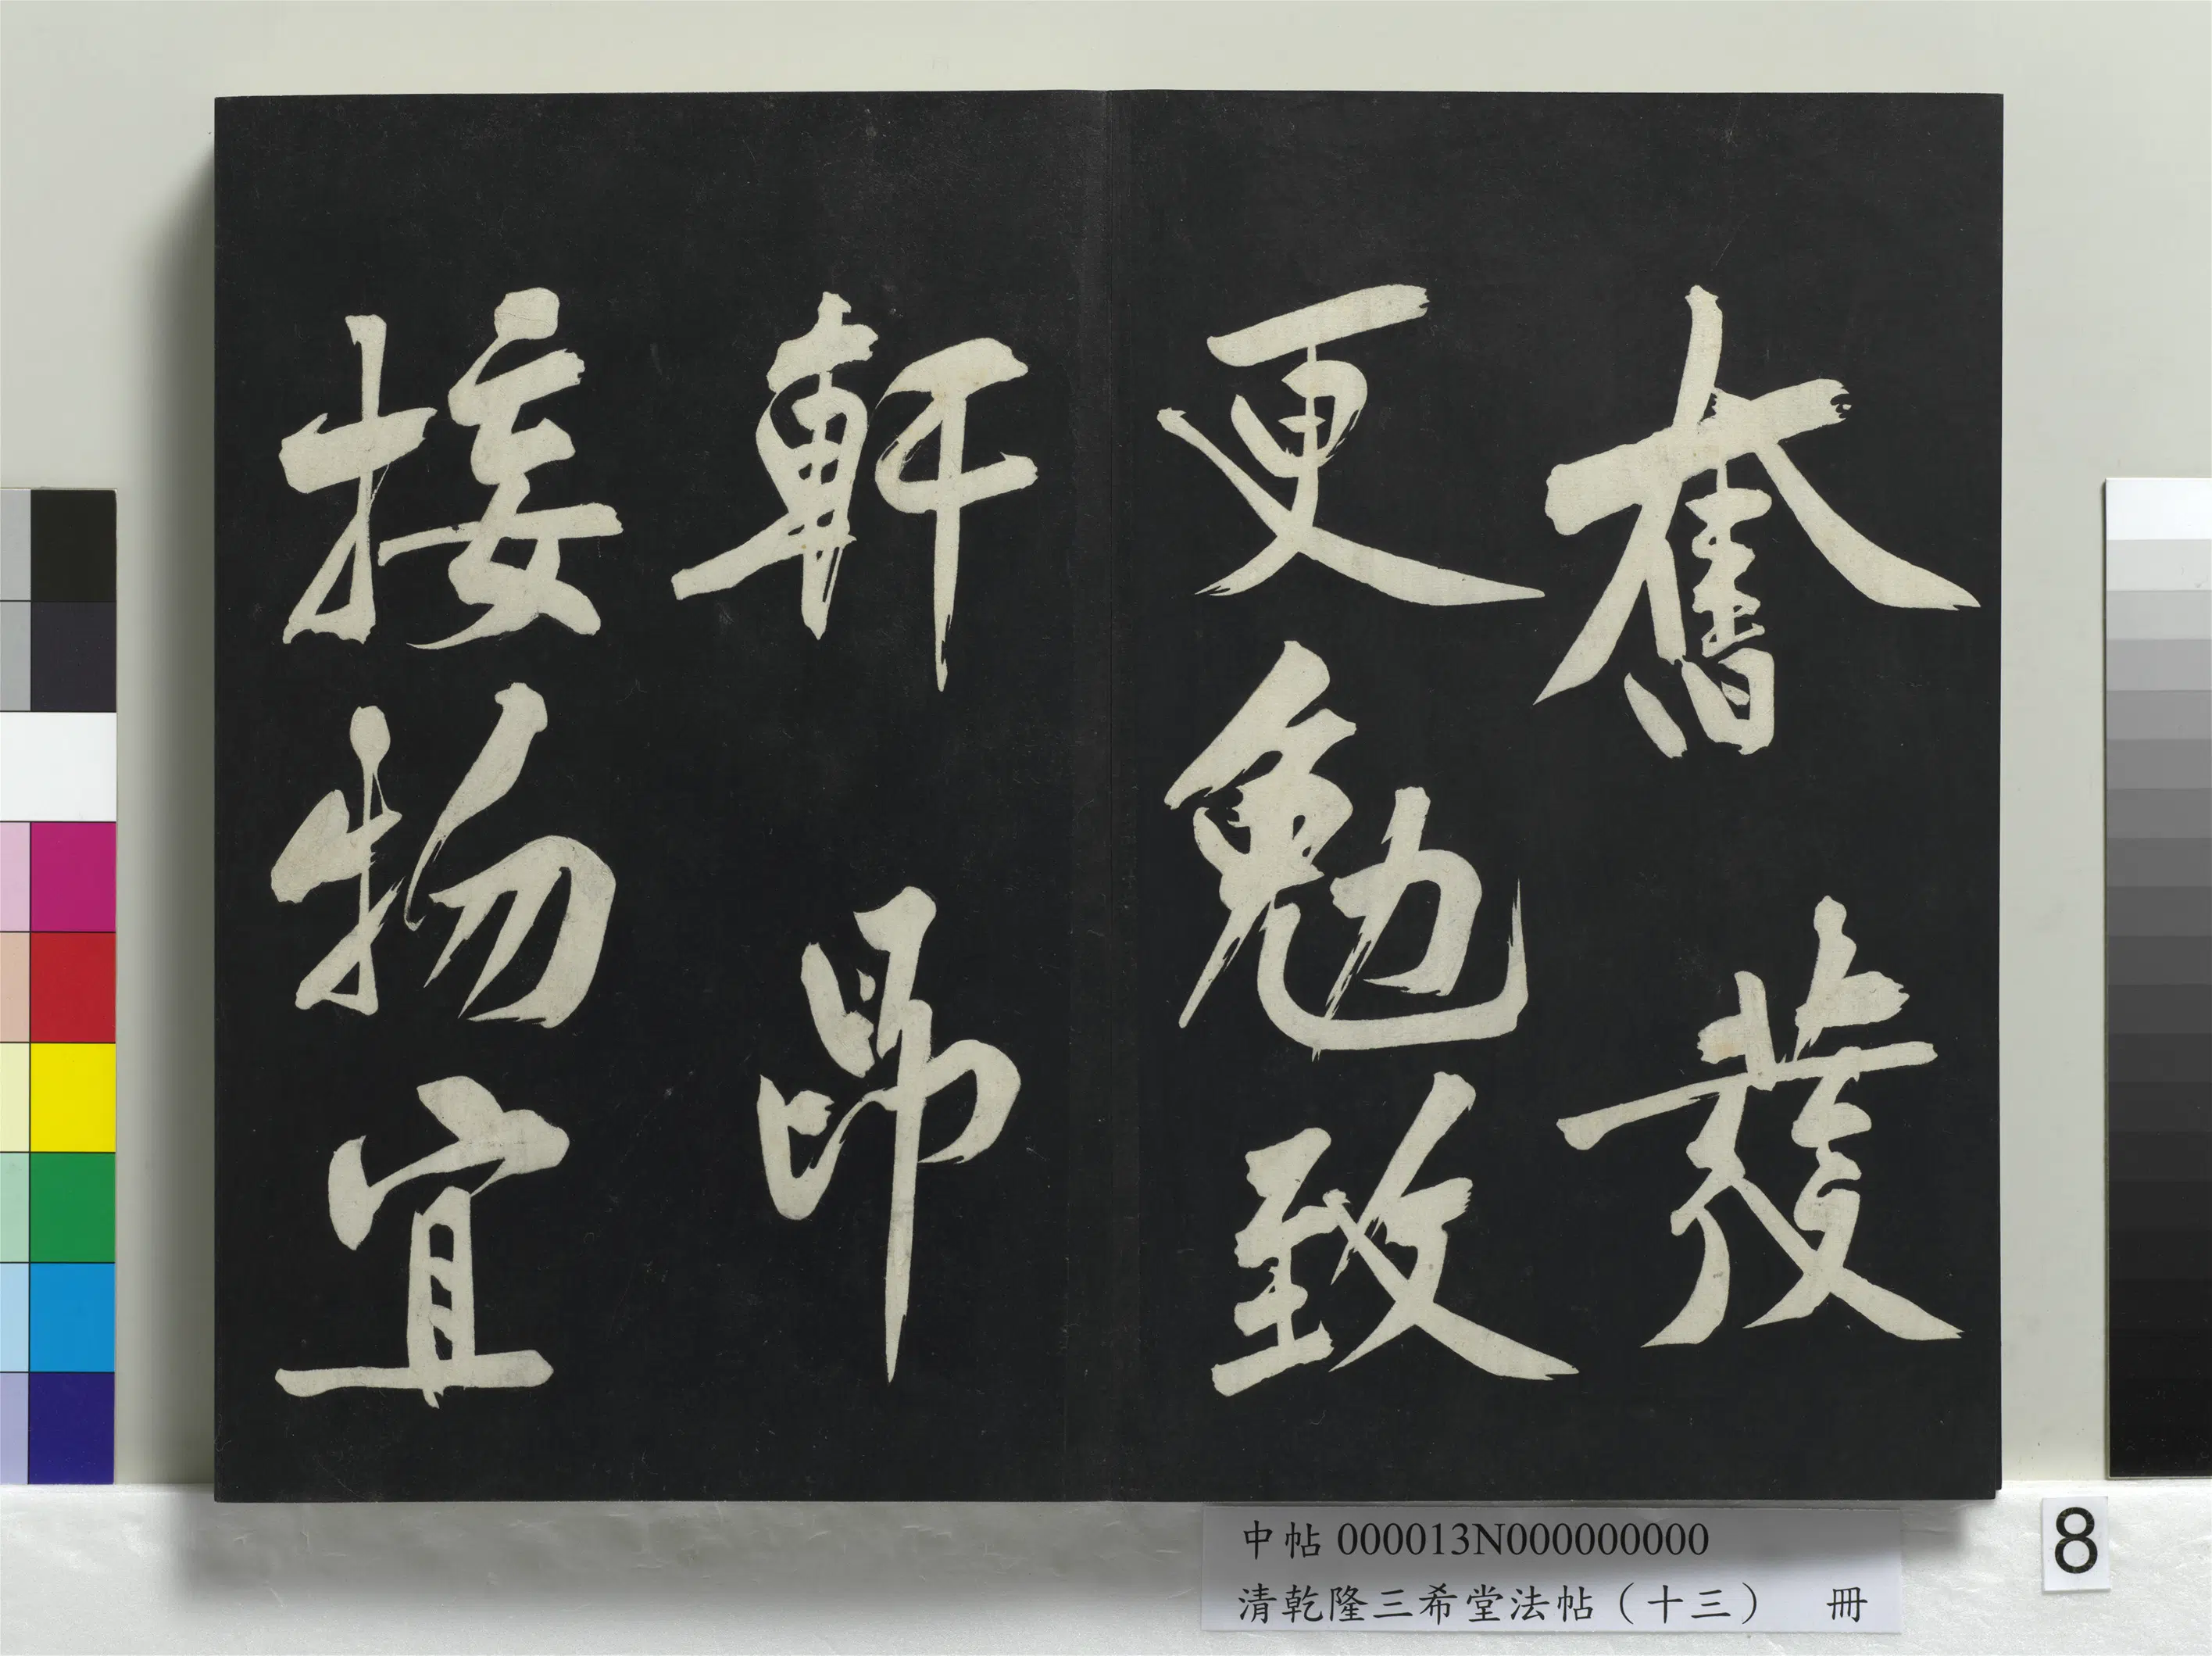 奮發
更勉致
軒昂
接物宜
中帖 000013N000000000
清乾隆三希堂法帖（十三） 冊
8